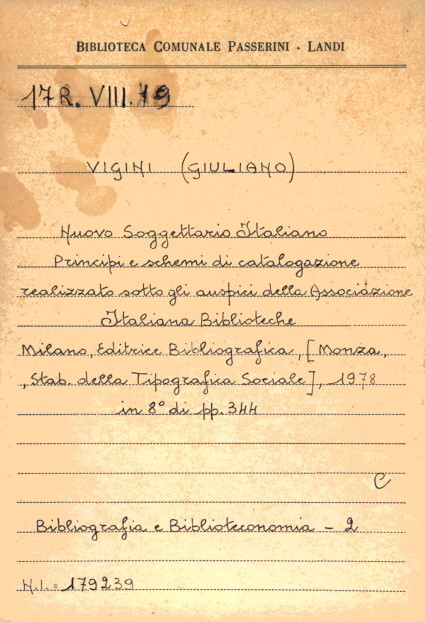 BIBLIOTECA COMUNALE PASSERINI - LANDI
17R. VIII. 19
VIGINI (GIULIANO)
Nuovo Soggettario Italiano
Principi e schemi di catalogazione
realizzato sotto gli auspici della Associazione
Italiana Biblioteche
Milano, Editrice Bibliografica, [Monza,
, Stab. della Tipografica Sociale], 1978
in 8° di pp. 344
C
Bibliografia e Biblioteconomia - 2
N.I. = 179239